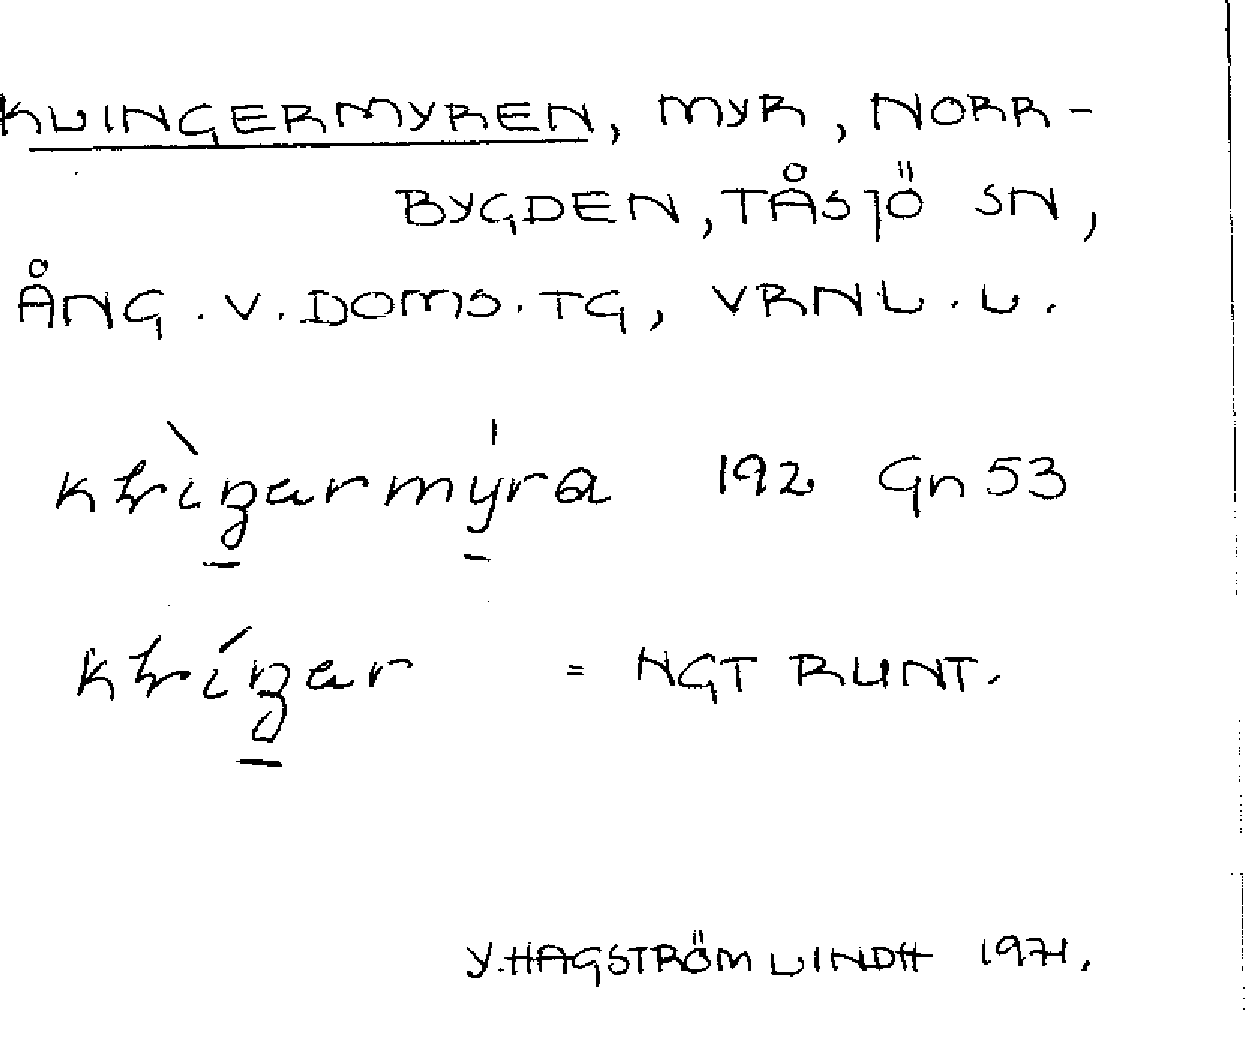 KLINGERMYREN, MYR, NORR-
BYGDEN, TÅSJÖ SN,
ÅNG. V. DOMS. TG, VRNL. L.
192 Gn 53
= NGT RUNT.
Y. HAGSTRÖM LINDH 1971.